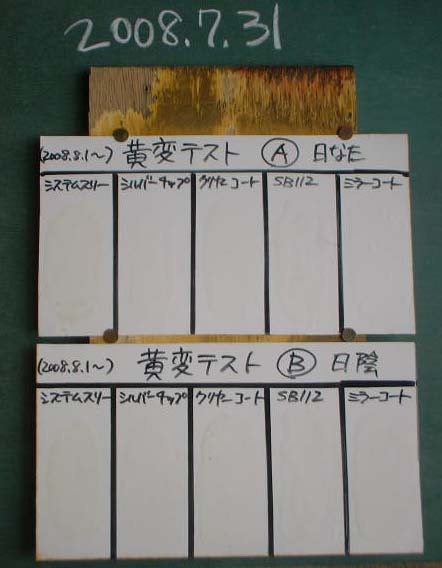 2008.7.31
(2008.8.1~) 黄変テスト Ⓐ 日なた
システムスリー シルバーチップ クリヤーコート SB112 ミラーコート
(2008.8.1~) 黄変テスト Ⓑ 日陰
システムスリー シルバーチップ クリヤーコート SB112 ミラーコート